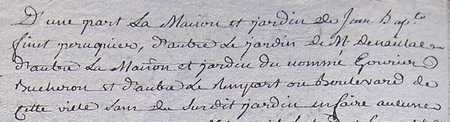 D'une part La Maison et jardin de Jean Bap.te
finet peruquier, d'autre Le jardin de Mr
d'autre La Maison et jardin du nommé Gourier
Bucheron et d'autre Le Rempart ou Boulevard de
cette ville sans du surdit jardin en faire aucune